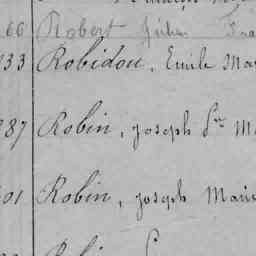 66 Robert Julien Fra
33 Robidou, Emile Mar
287 Robin, Joseph Pre M
01 Robin, Joseph Marie
Robin